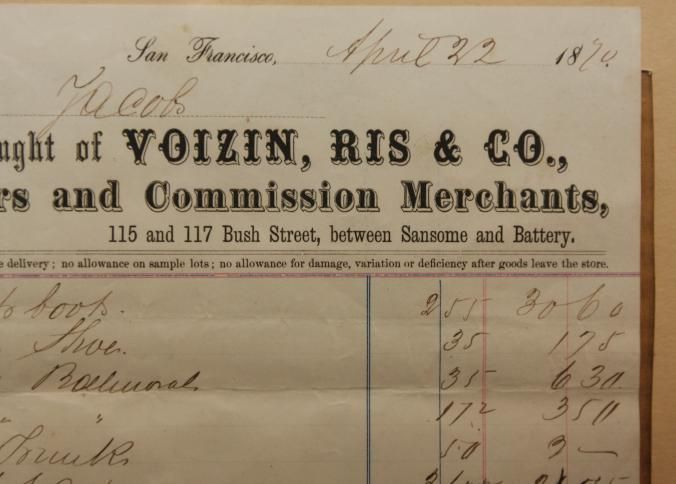 San Francisco, April 22 1870.
Jacobs
ught of VOIZIN, RIS & CO.,
rs and Commission Merchants,
115 and 117 Bush Street, between Sansome and Battery.
e delivery; no allowance on sample lots; no allowance for damage, variation or deficiency after goods leave the store.
boots. 255 3060
Shoes. 35 175
Balmorals 35 630
" " 350
Trunks 50 3 —